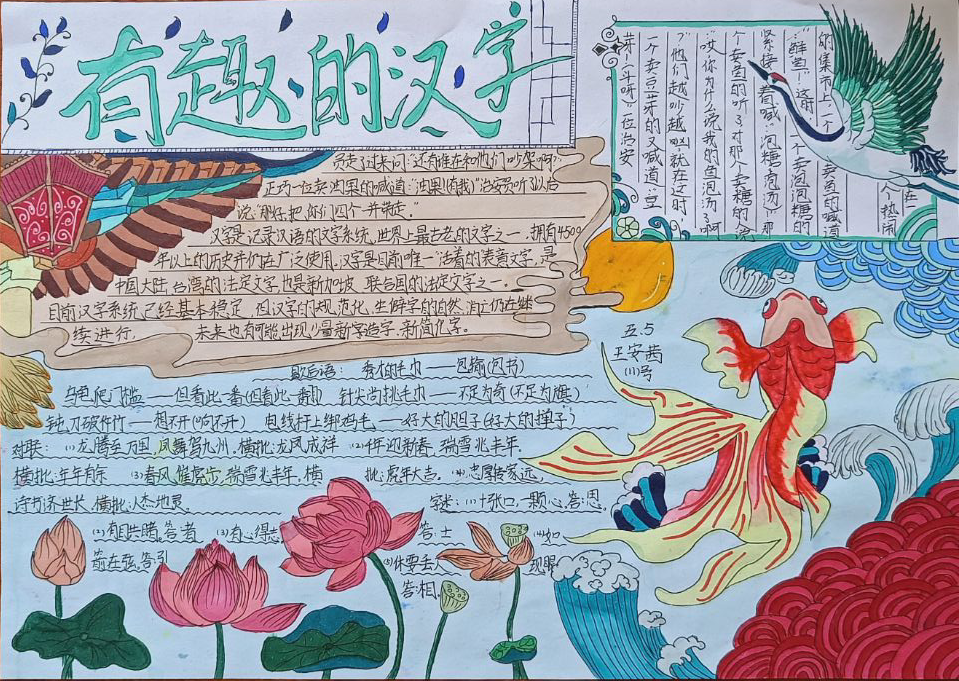 有趣的汉字
在一个热闹
的集市上，一个卖鱼的喊道
：“鲜鱼！”这时，一个卖泡泡糖的
紧接着喊：“泡糖（泡汤）”那
个卖鱼的听了对那个卖糖的说
：“哎，你为什么说我的鱼泡汤了啊
？”他们越吵越凶，就在这时，
一个卖豆芽的又喊道：豆
芽（斗呀）一位治安
员走了过来问：“还有谁在和他们吵架啊？”
正巧一位卖油果的喊道：“油果（有我）”治安员听了以后
说：“那好，把你们四个一并带走。”
汉字是记录汉语的文字系统，世界上最古老的文字之一，拥有4500
年以上的历史并仍在广泛使用，汉字是目前唯一活着的表意文字，是
中国大陆、台湾的法定文字也是新加坡、联合国的法定文字之一。
目前汉字系统已经基本稳定，但汉字的规范化，生僻字的自然消亡仍在继
续进行，未来也有可能出现少量新字造字，新简化字。
五.5
王安茜
(11)号
歇后语：
——包输(包书)
乌龟爬门槛——但看此一番(但看此一翻) 针尖尚挑毛巾——不足为奇(不足为旗)
钝刀破竹——想不开(响不开) 电线杆上绑鸡毛——好大的胆子(好大的掸子)
对联：(1)龙腾至万里，凤舞驾九州，横批：龙凤成祥 (2)千年迎新春，瑞雪兆丰年，
横批：年年有余 (3)春风催虎步，瑞雪兆丰年，横批：虎年大吉。(4)忠厚传家远，
诗书济世长，横批：人杰地灵
字谜：(1)十张口，一颗心，答：思，
(2)有目共睹，答：者 (3)有心得志 答：士 (4)如
箭在弦，答：引 (5)休要丢人现眼
答：相